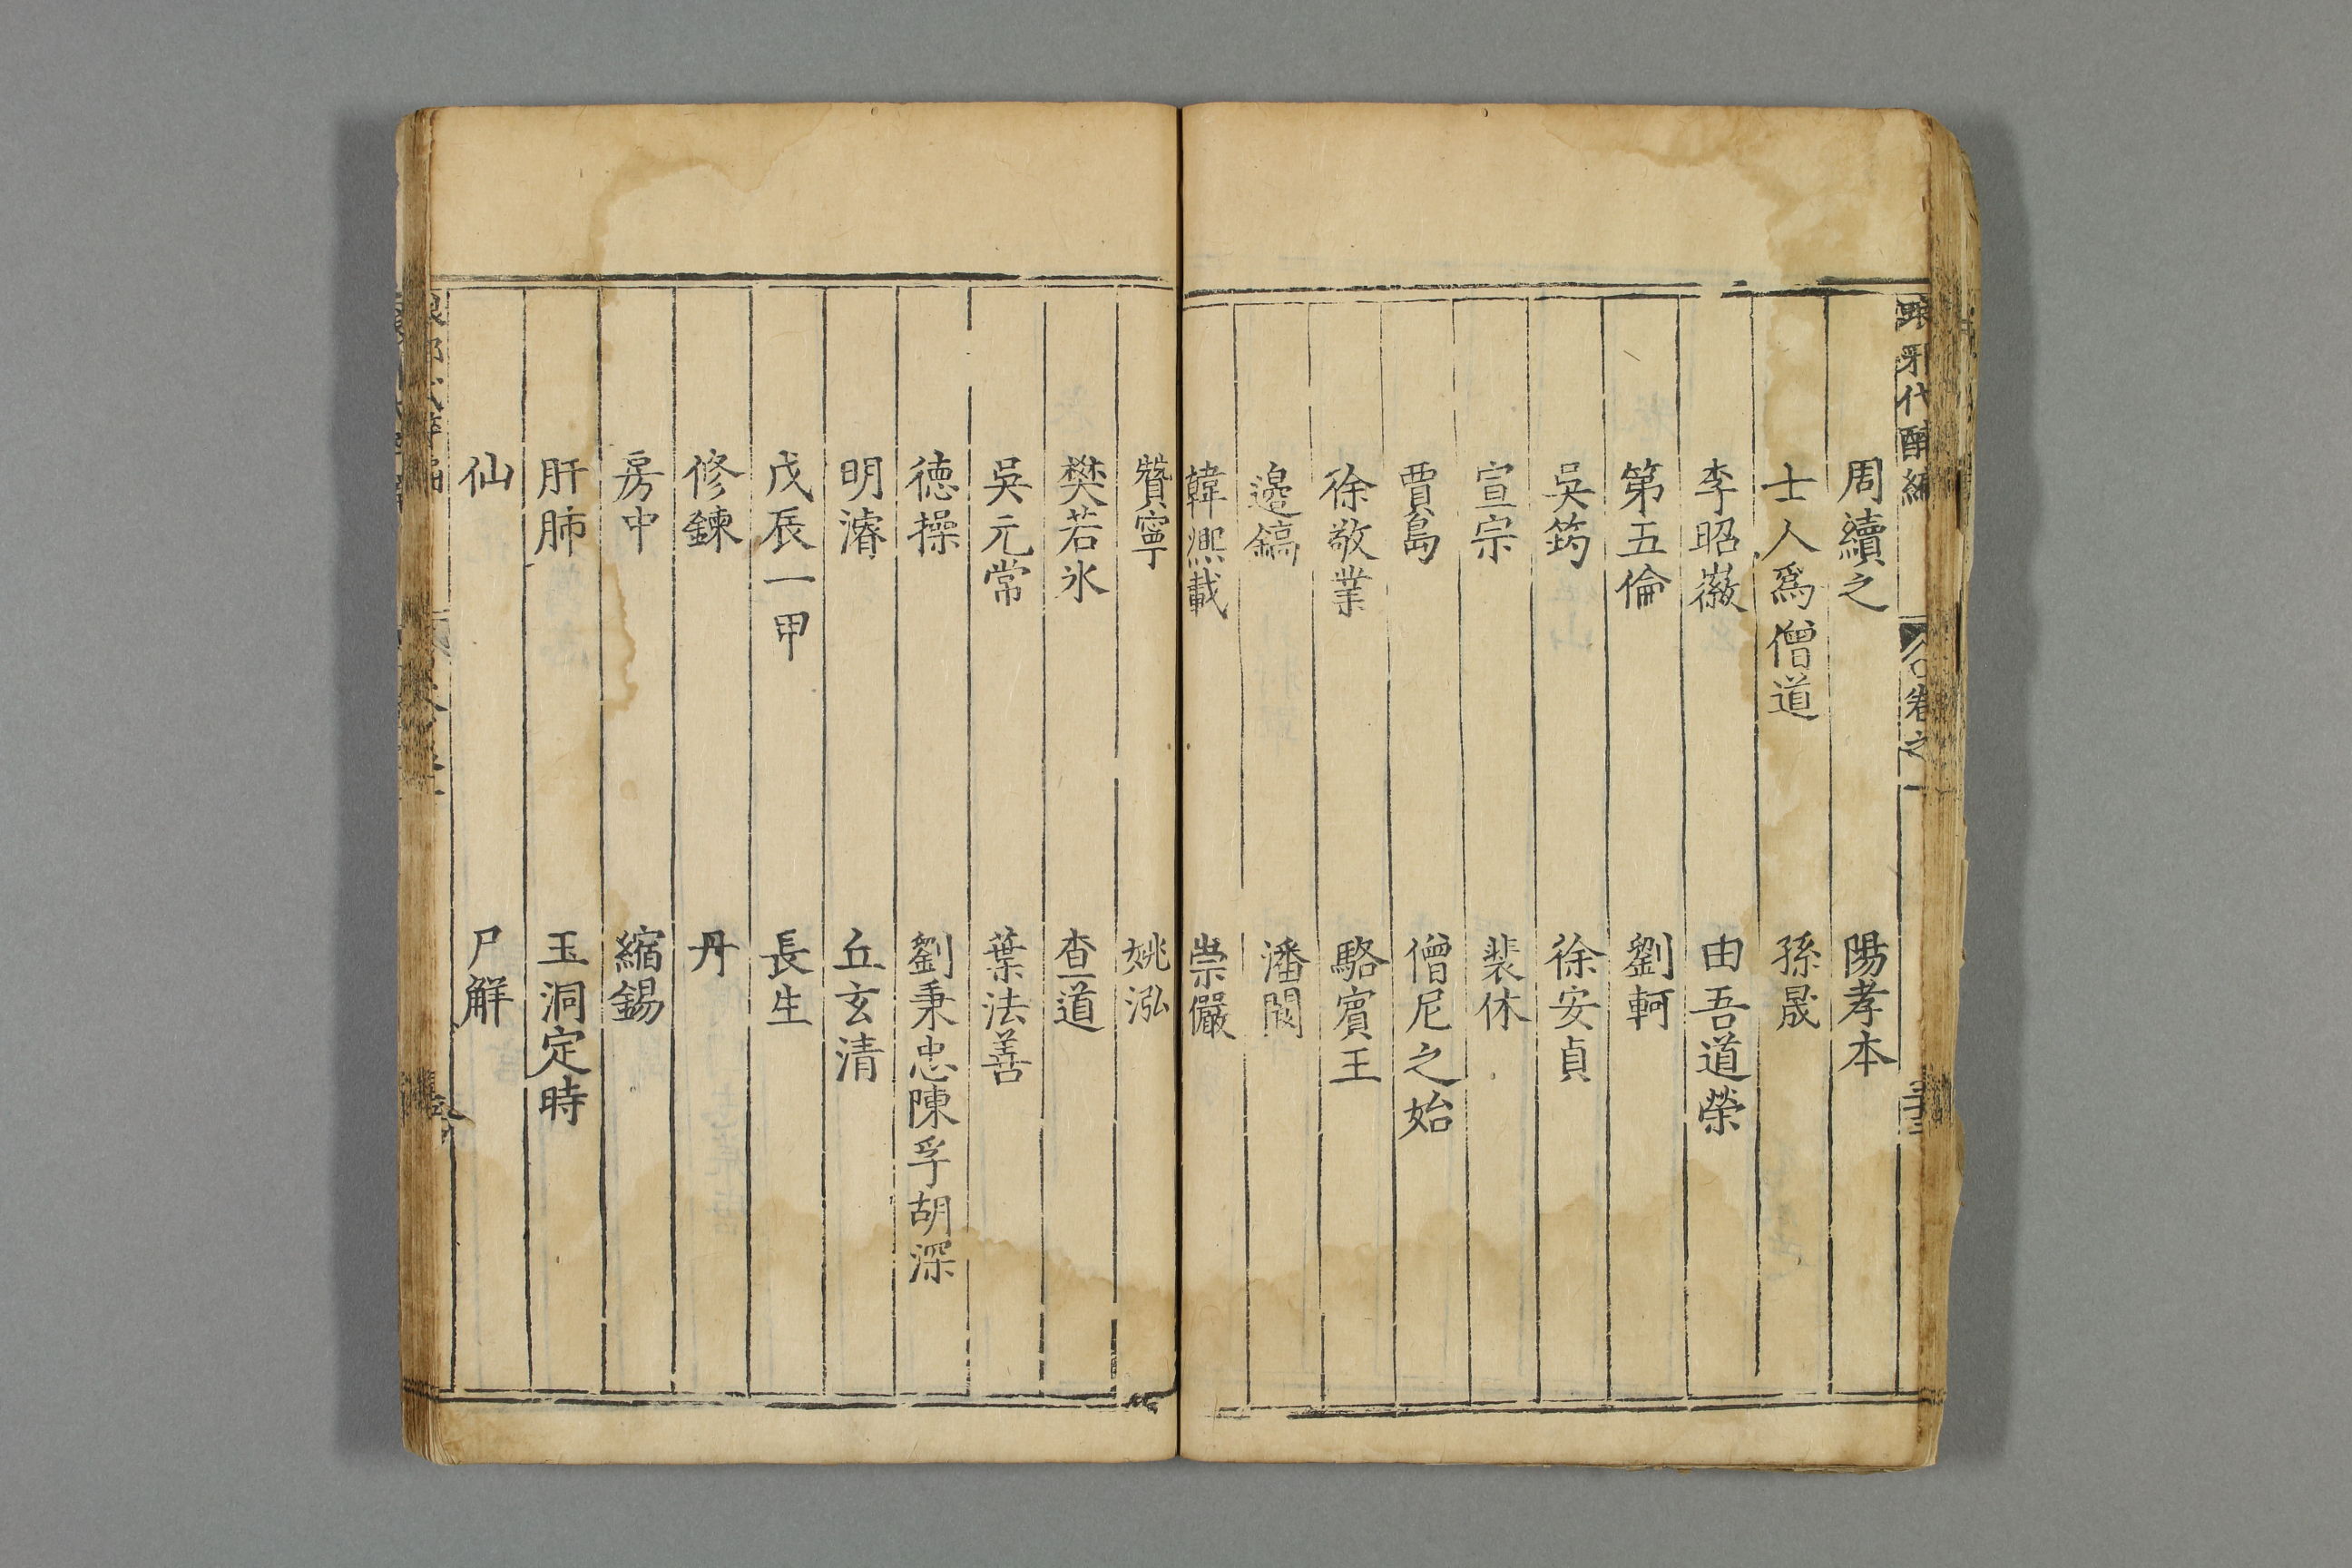 琅邪代醉編 卷之
周續之 陽孝本
士人爲僧道 孫晟
李昭徽 由吾道榮
第五倫 劉軻
吳筠 徐安貞
宣宗 裴休
賈島 僧尼之始
徐敬業 駱賓王
邊鎬 潘閬
韓熙載 崇儼
贊寧 姚泓
樊若氷 查道
吳元常 葉法善
德操 劉秉忠陳孚胡深
明濬 丘玄清
戊辰一甲 長生
修鍊 丹
房中 縮錫
肝肺 玉洞定時
仙 尸解